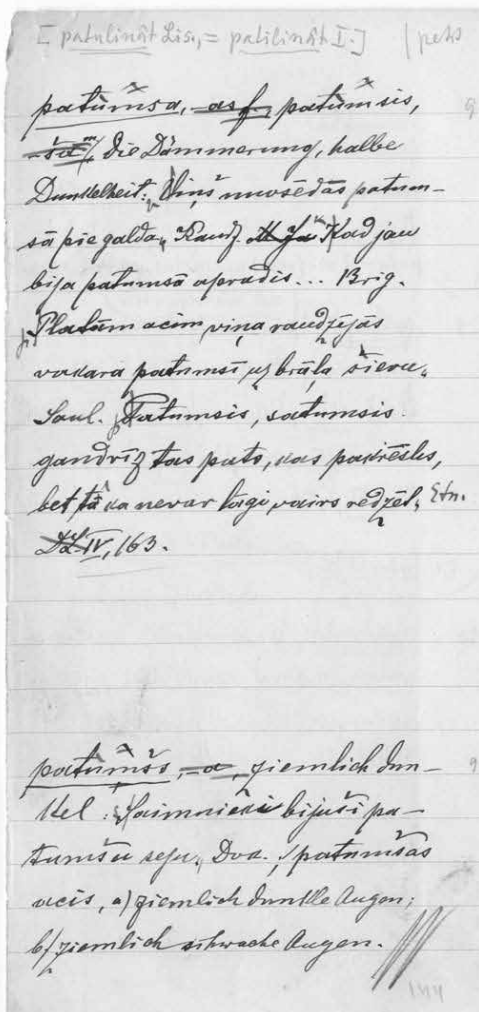 [patulinât Lis., = patilinât I.] (pets
patùmsa, -as f, patùmsis,
-ša m, die Dämmerung, halbe
Dunkelheit: Viņš nuosēdās patum-
sā pie galda, Kaudz. M. Ja Kad jau
bija patumsā aparadis... Brig.
Platām acīm viņa raudzījās
vakara patumsī uz brāļa sievu,
Saul. Patumsis, satumsis
gandrīz tas pats, kas pakrēslis,
bet tā ka nevar lāgi vairs redzēt, Etn.
IV, 163.
patùmšs, -a, ziemlich dun-
kel: Saimnieki bijuši pa-
tumšu seju, Dok. patumšas
acis, a) ziemlich dunkle Augen;
b) ziemlich schwache Augen.
144